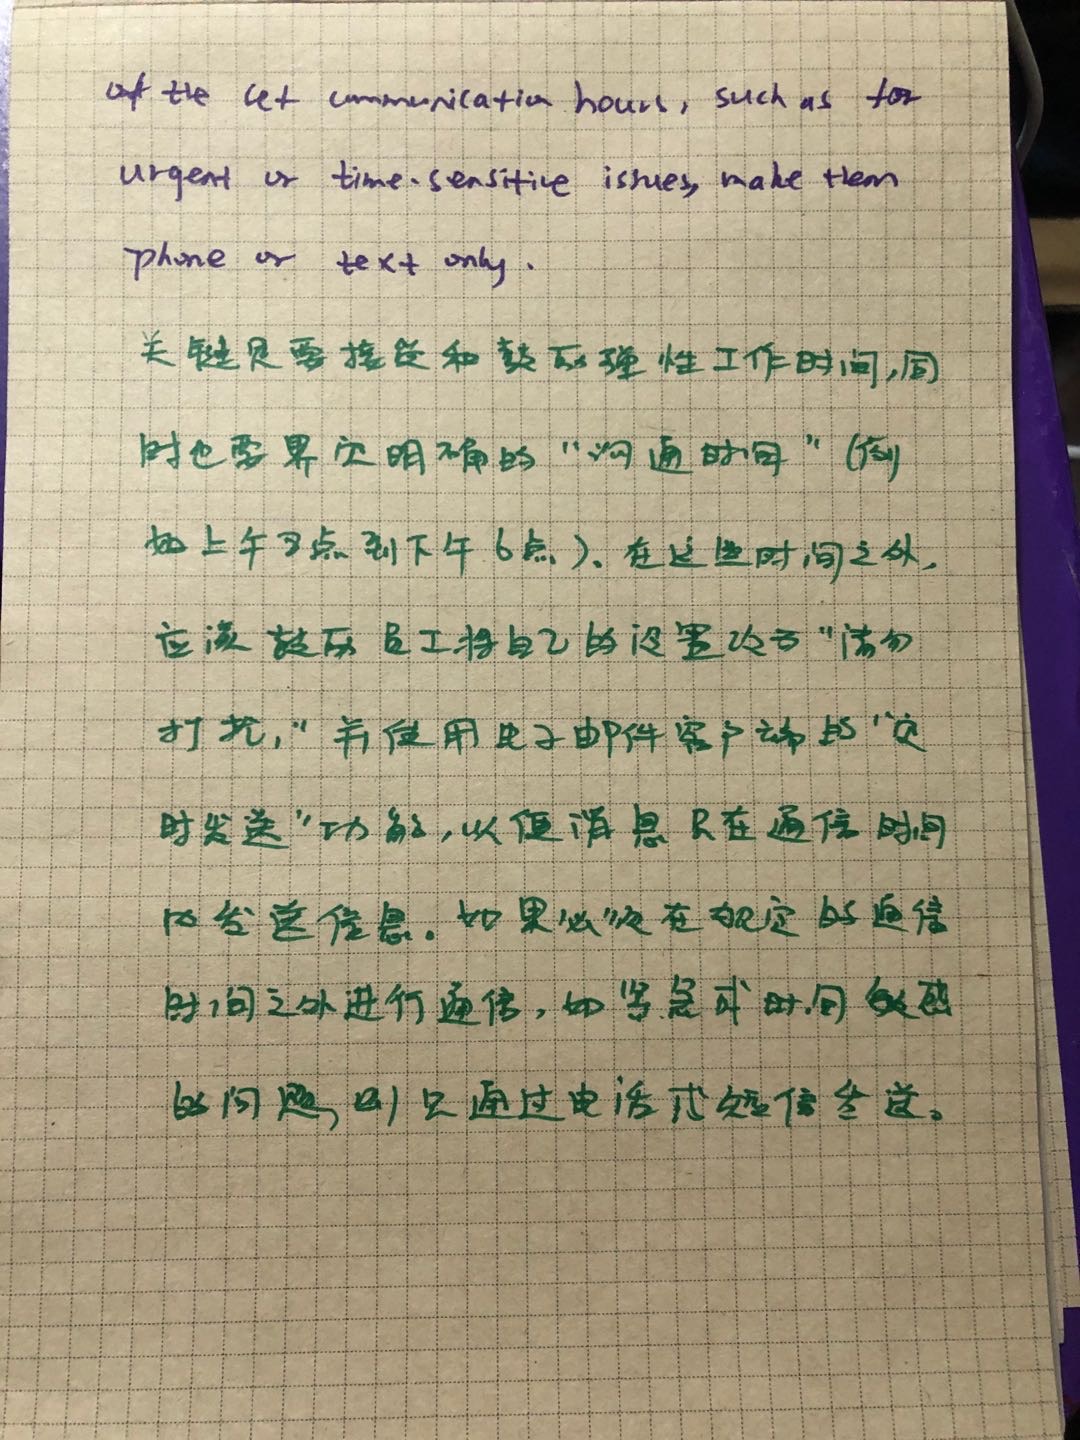 of the set communication hours, such as for
urgent or time-sensitive issues, make them
phone or text only.
关键是要接受和鼓励弹性工作时间,同
时也要界定明确的“沟通时间”(例
如上午8点到下午6点)。在这些时间之外,
应该鼓励员工将自己的设置改为“请勿
打扰,”并使用电子邮件客户端的“定
时发送”功能,以便消息只在通信时间
内发送信息。如果必须在规定的通信
时间之外进行通信,如紧急或时间敏感
的问题,则只通过电话或短信发送。